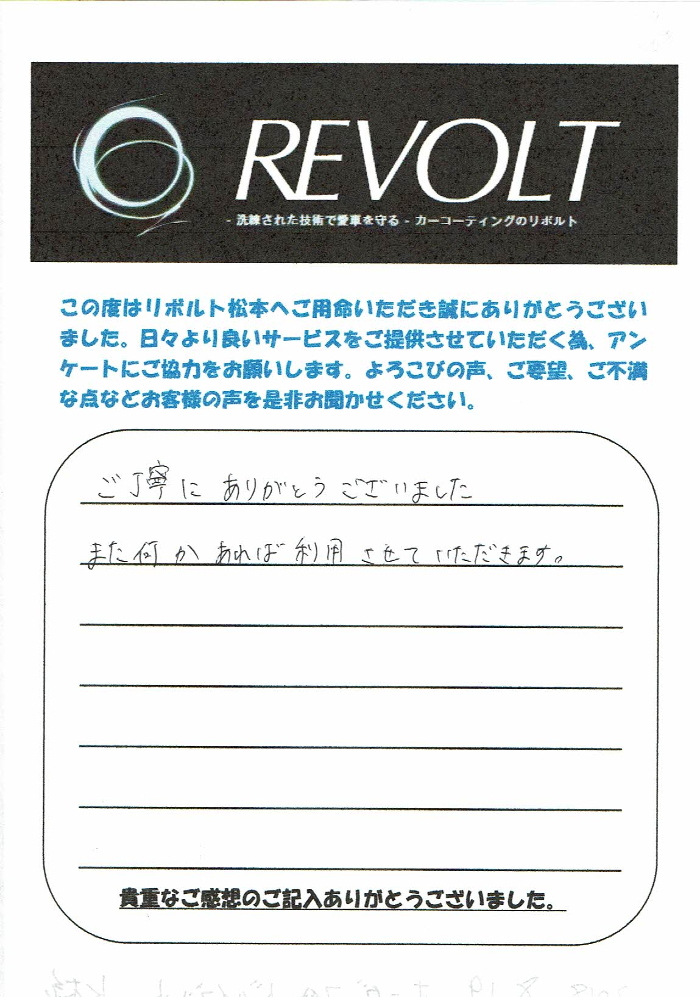 REVOLT
- 洗練された技術で愛車を守る - カーコーティングのリボルト
この度はリボルト松本へご用命いただき誠にありがとうござい
ました。日々より良いサービスをご提供させていただく為、アン
ケートにご協力をお願いします。よろこびの声、ご要望、ご不満
な点などお客様の声を是非お聞かせください。
ご丁寧に ありがとう ございました
また何か あれば 利用 させて いただきます。
貴重なご感想のご記入ありがとうございました。